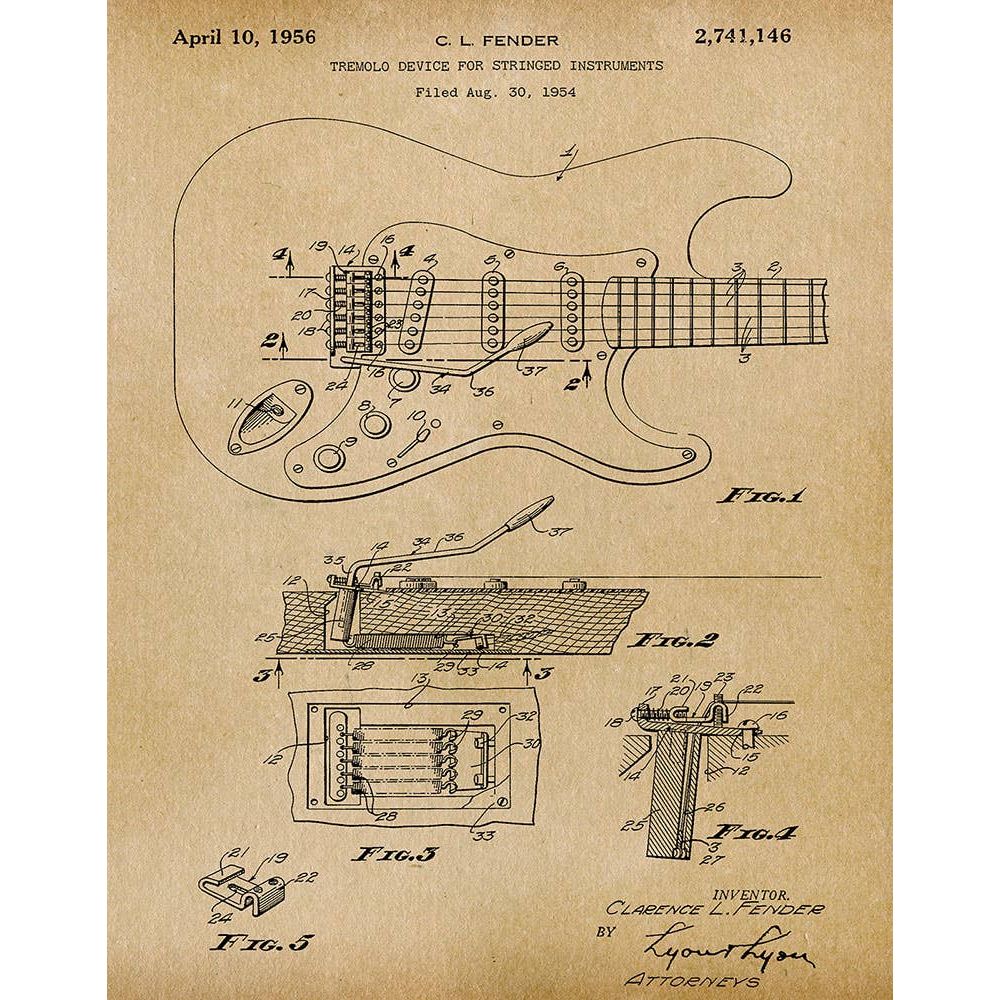 April 10, 1956
C. L. FENDER
2,741,146
TREMOLO DEVICE FOR STRINGED INSTRUMENTS
Filed Aug. 30, 1954
1
4 19 14 16 4 4 5 6 3 2
17
20
18 23
2 3
24 16 34 36 37 2
7
11 8 10
9
FIG.1
37
34 36
35 14 22
12 15 13 30 32
25
28 29 33 14
FIG.2
3 3
13
29 32
12 30
28 33
FIG.3
17 20 21 19 23 22
18 16
14 15 12
25 26
3
27
FIG.4
21 19 22
24
FIG.5
INVENTOR.
CLARENCE L. FENDER
BY Lyon & Lyon
ATTORNEYS